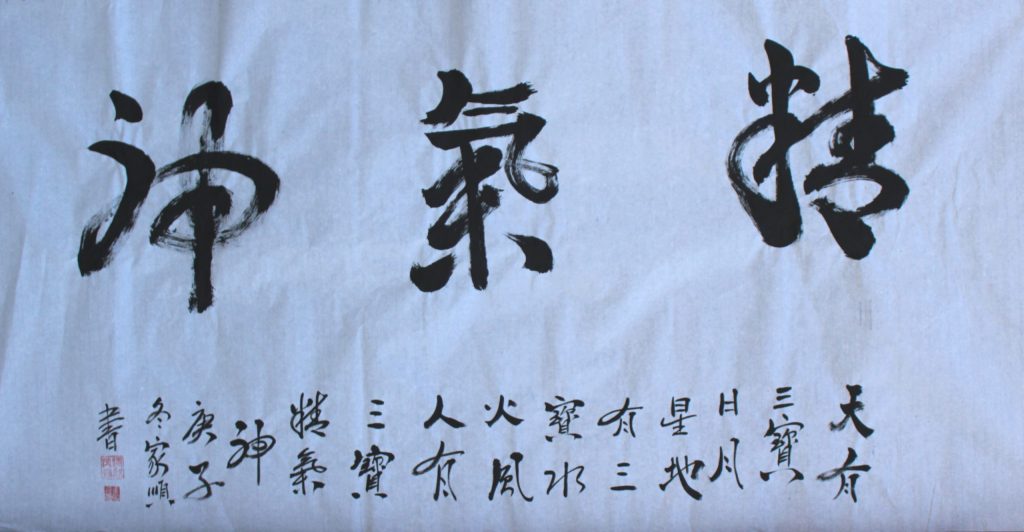 精氣神
天有
三寶
日月
星地
有三
寶水
火風
人有
三寶
精氣
神
庚子
冬家順
書